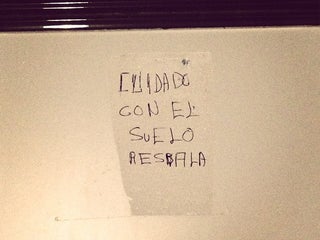 CUIDADO
CON EL
SUELO
RESBALA